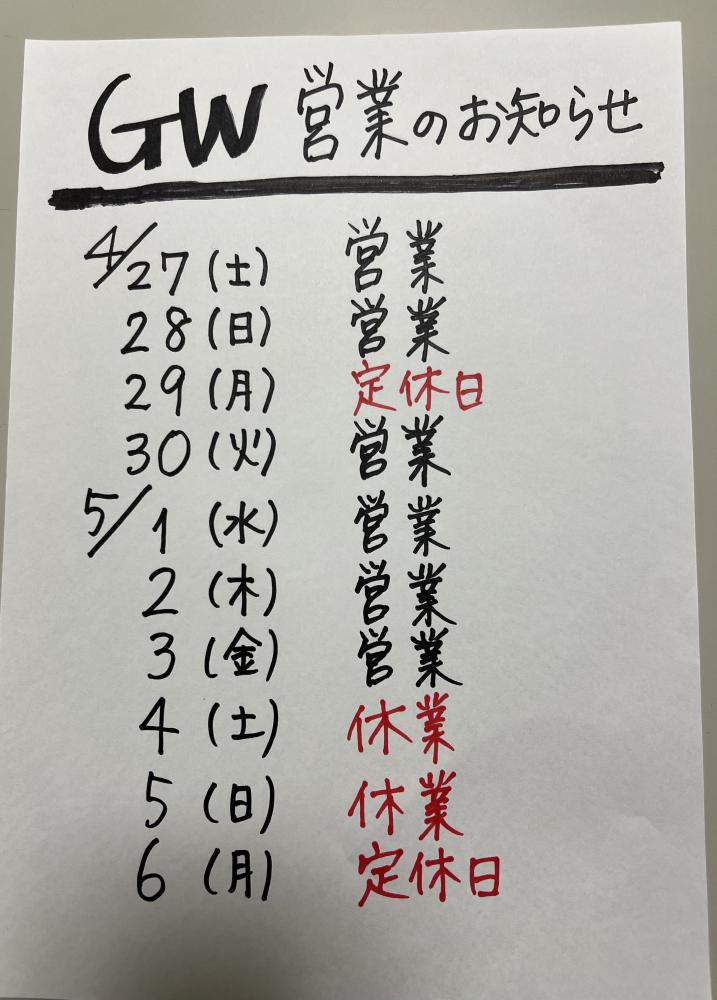 GW 営業のお知らせ
4/27 (土) 営業
28 (日) 営業
29 (月) 定休日
30 (火) 営業
5/1 (水) 営業
2 (木) 営業
3 (金) 営業
4 (土) 休業
5 (日) 休業
6 (月) 定休日